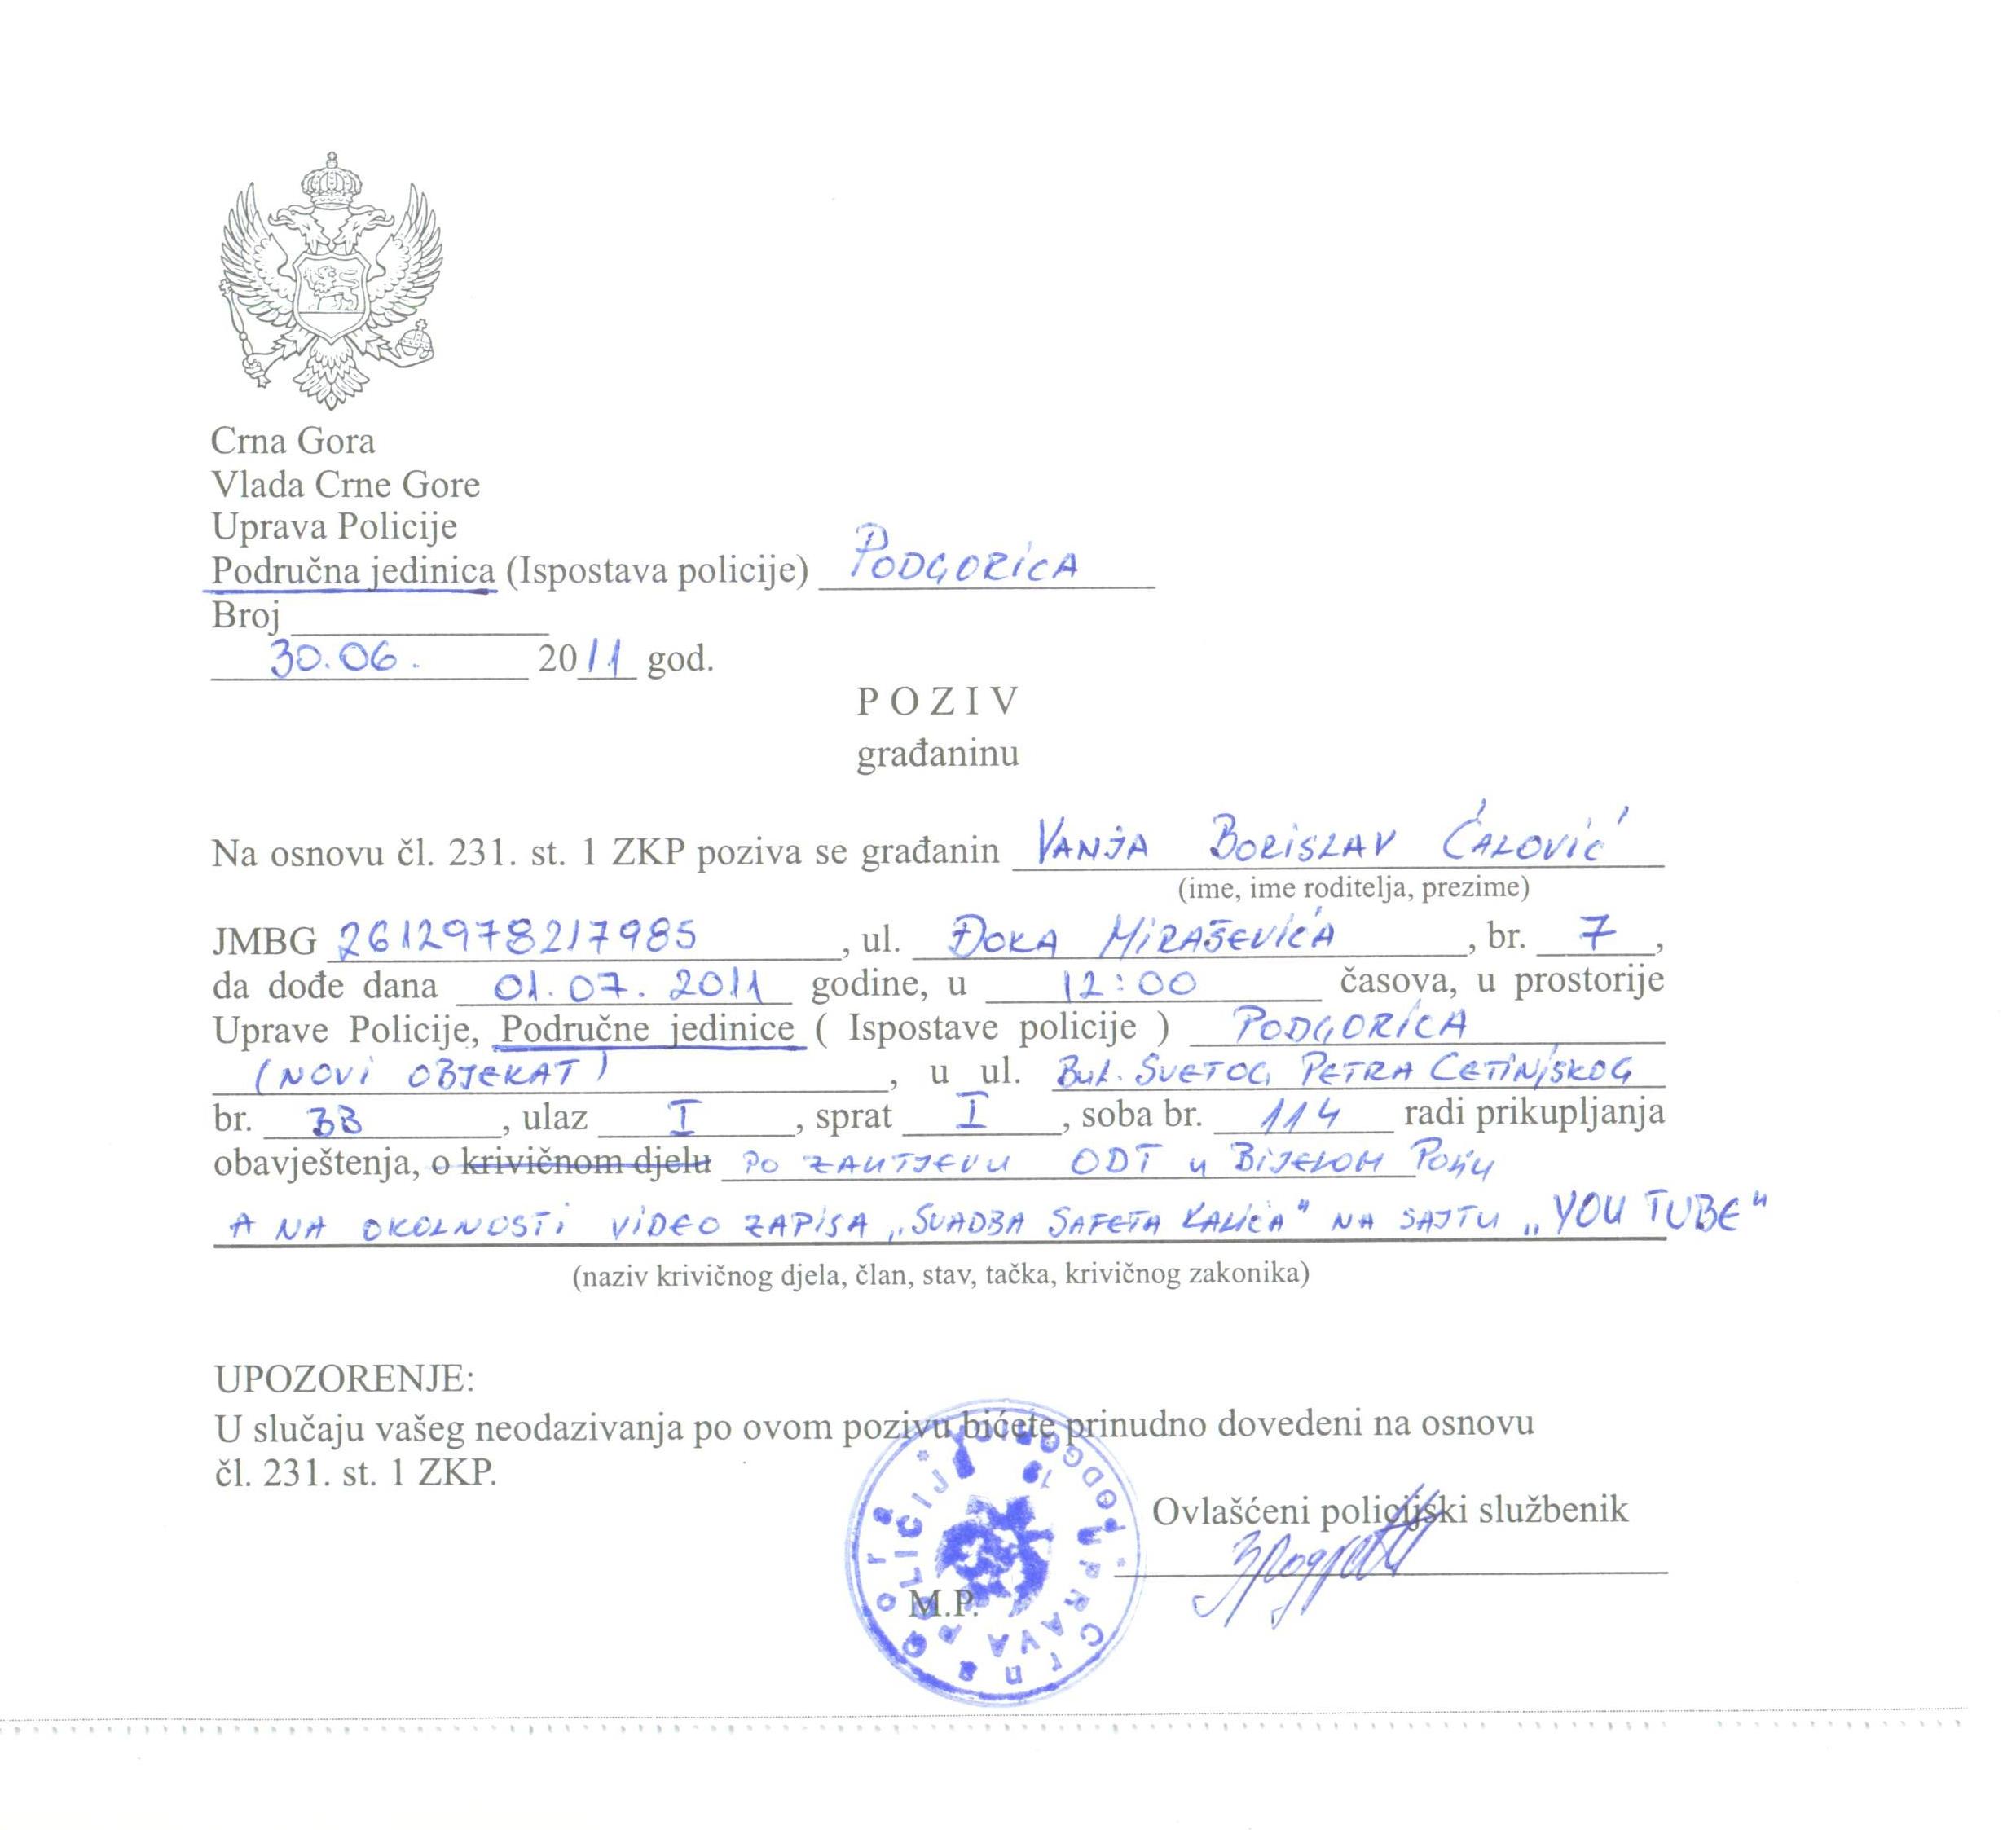 Crna Gora
Vlada Crne Gore
Uprava Policije
Područna jedinica (Ispostava policije) PODGORICA
Broj
30.06. 2011 god.
POZIV
građaninu
Na osnovu čl. 231. st. 1 ZKP poziva se građanin VANJA BORISLAV ĆALOVIĆ
(ime, ime roditelja, prezime)
JMBG 2612978217985, ul. ĐOKA MIRAŠEVIĆA, br. 7,
da dođe dana 01.07.2011 godine, u 12:00 časova, u prostorije
Uprave Policije, Područne jedinice ( Ispostave policije ) PODGORICA
(NOVI OBJEKAT), u ul. BUL. SVETOG PETRA CETINJSKOG
br. BB, ulaz I, sprat I, soba br. 114 radi prikupljanja
obavještenja, o krivičnom djelu PO ZAHTJEVU ODT U BIJELOM POLJU
A NA OKOLNOSTI VIDEO ZAPISA „SVADBA SAFETA KALIĆA" NA SAJTU „YOU TUBE"
(naziv krivičnog djela, član, stav, tačka, krivičnog zakonika)
UPOZORENJE:
U slučaju vašeg neodazivanja po ovom pozivu bićete prinudno dovedeni na osnovu
čl. 231. st. 1 ZKP.
Ovlašćeni policijski službenik
M.P.
Crna Gora
UPRAVA POLICIJE
PODGORICA